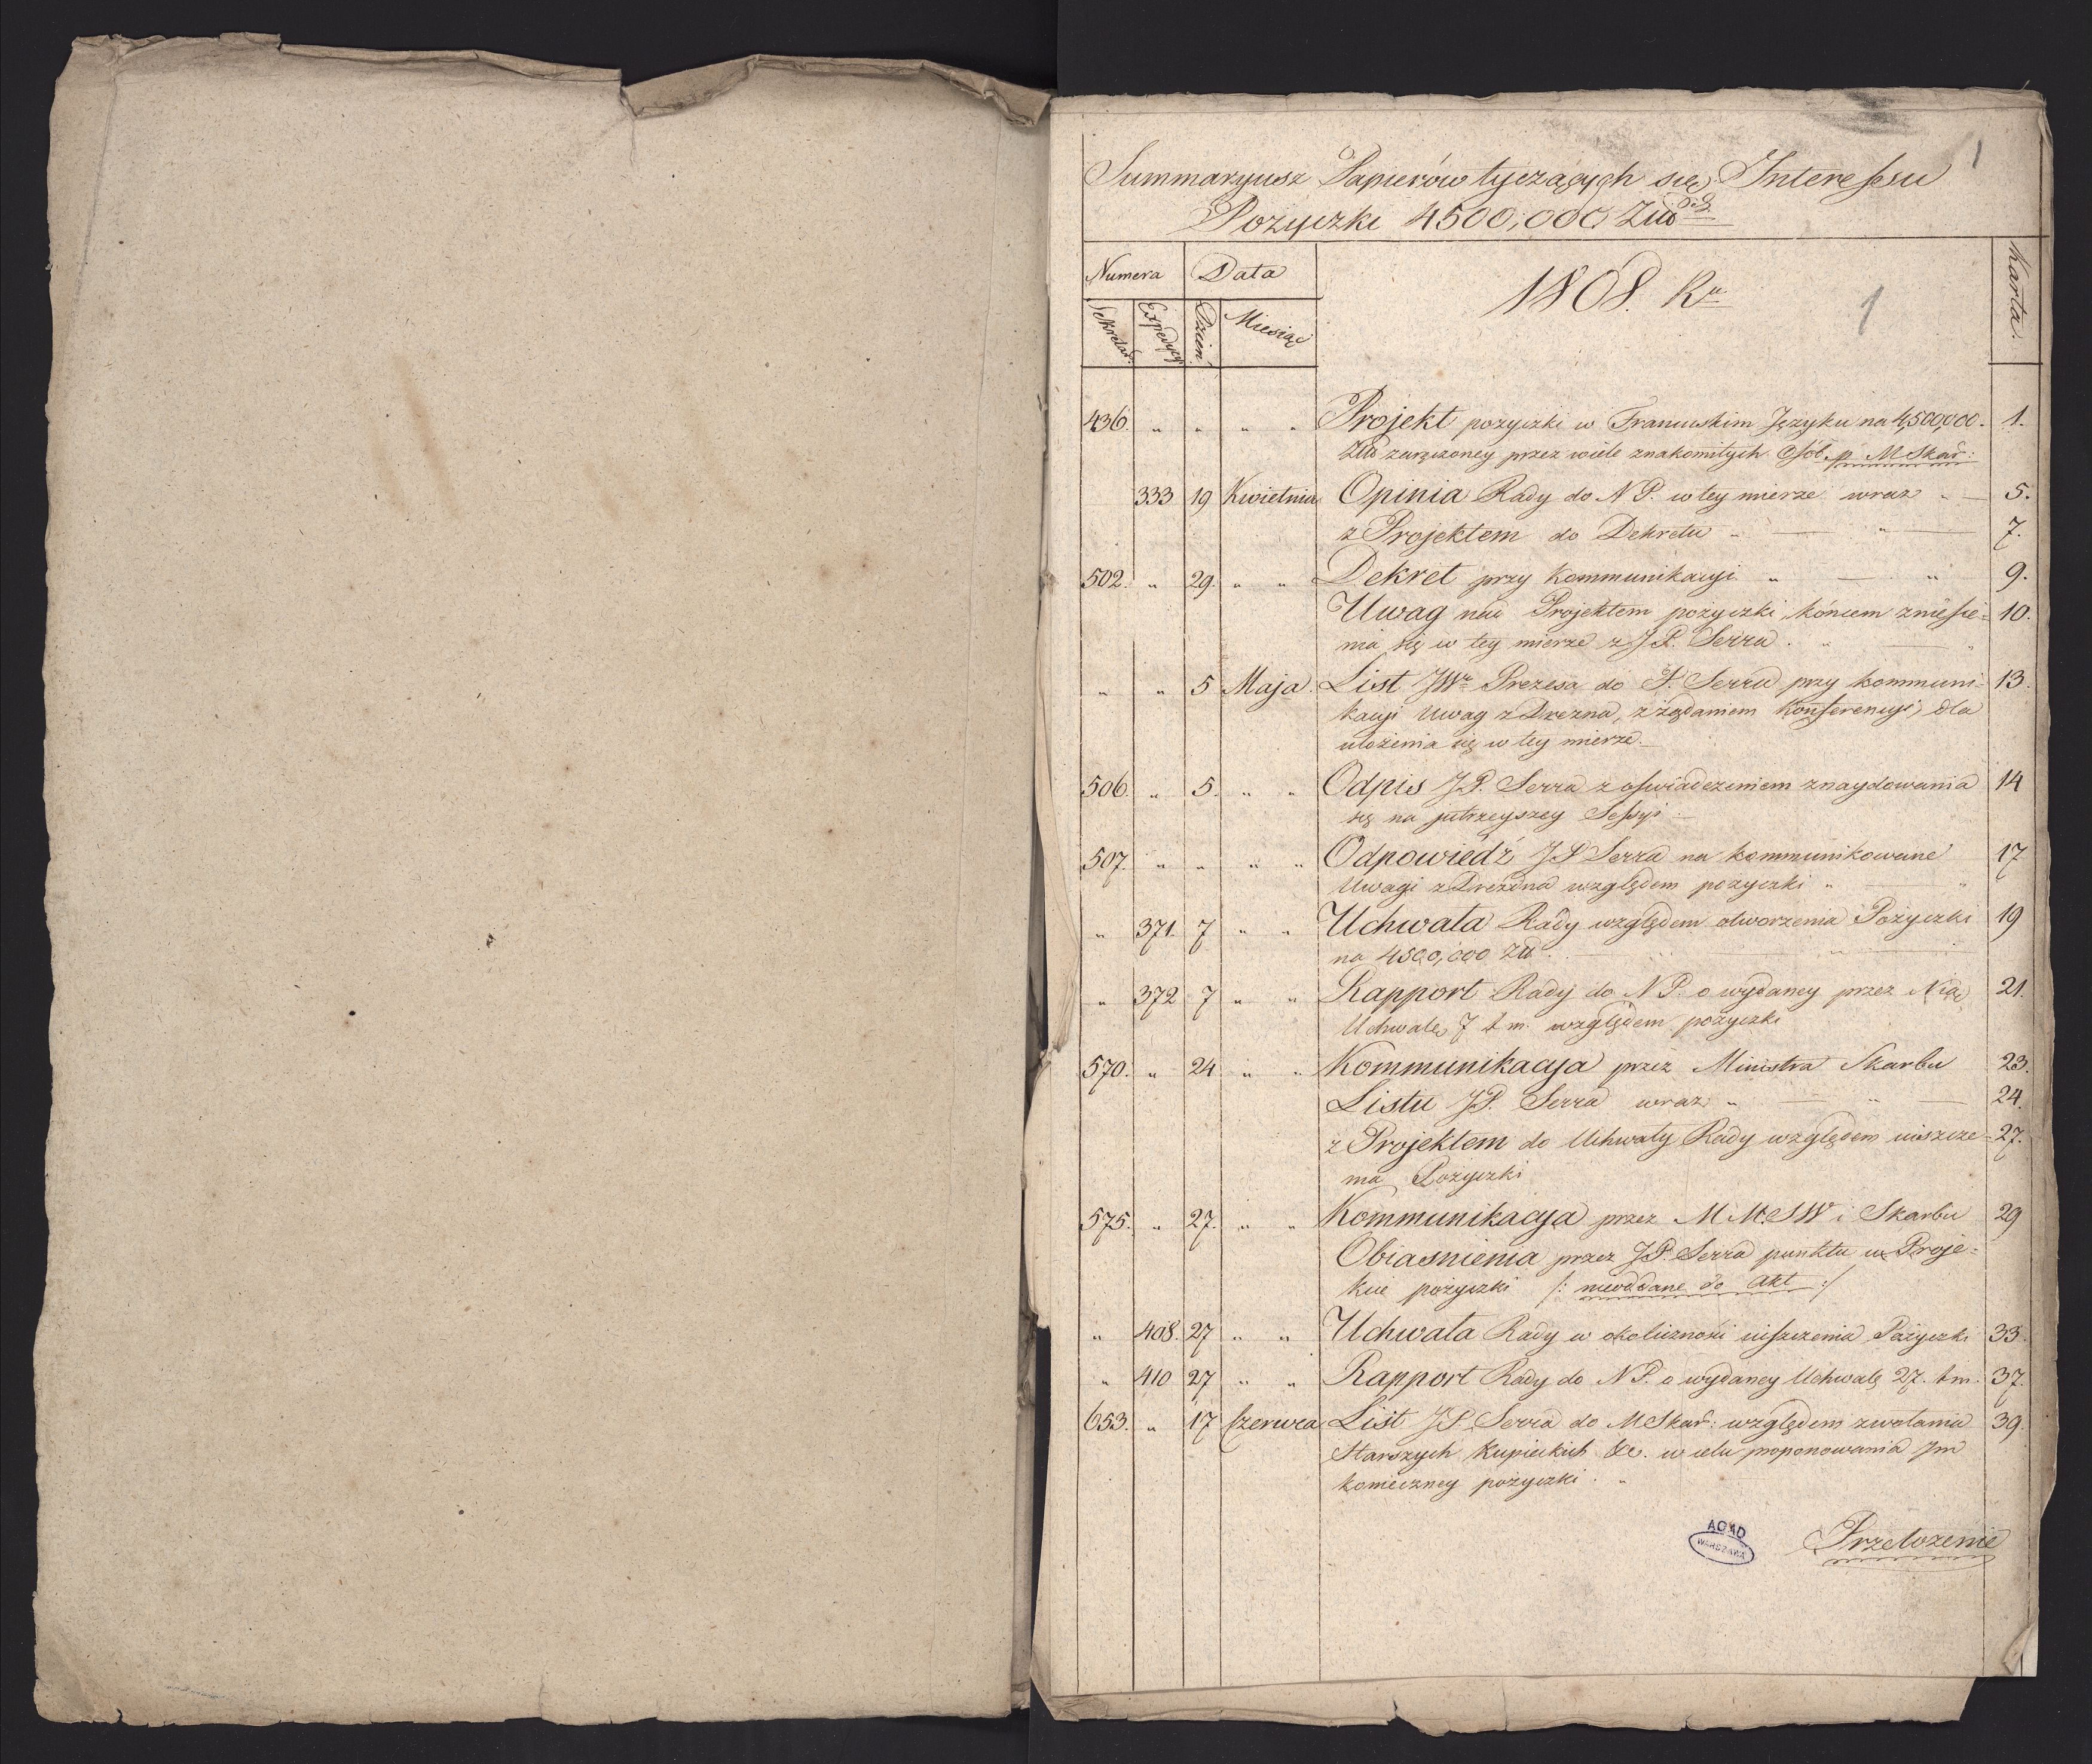 1
Summaryusz Papierów tyczących się Interessu
Pożyczki 4500,000 Złł
Numera Data Karta.
Sekretar: Expedycyi Dzień Miesiąc
1808. Ru
1
436. " " " " Projekt pożyczki w Francuskim Języku na 4,500,000. 1.
Złł zaręczoney przez wiele znakomitych Osób. p. M Skar:
333 19 Kwietnia Opinia Rady do N P. w tey mierze wraz " — 5.
z Projektem do Dekretu " — " — 7.
502. " 29. " " Dekret przy Kommunikacyi " — " 9.
Uwag nad Projektem pożyczki, końcem zniesie= 10.
nia się w tey mierze z J P. Serra. " — "
" " 5 Maja. List JWo Prezesa do P. Serra przy kommuni= 13.
kacyi Uwag z Drezna, z żądaniem Konferencyi, dla
ułożenia się w tey mierze.—
506. " 5. " " Odpis J P. Serra z oświadczeniem znaydowania 14
się na jutrzeyszey Sessyi —
507. " " " " Odpowiedź J P Serra na kommunikowane 17
Uwagi z Drezdna względem pożyczki " — "
" 371. 7 " " Uchwała Rady względem otworzenia Pożyczki 19
na 4500,000 Złł.
" 372 7 " " Rapport Rady do N P. o wydaney przez Nią 21.
Uchwale 7 t m. względem pożyczki
570. " 24 " " Kommunikacyja przez Ministra Skarbu 23.
Listu J P. Serra wraz " — " — 24.
z Projektem do Uchwały Rady względem uiszcze= 27.
nia Pożyczki
575. " 27. " " Kommunikacyja przez M M. S W i Skarbu 29
Obiasnienia przez J P. Serra punktu w Proje=
kcie pożyczki /: nieoddane do Akt :/
" 408. 27 " " Uchwała Rady w okoliczności uiszczenia Pożyczki 33.
" 410 27 " " Rapport Rady do N P. o wydaney Uchwale 27. t m. 37.
653. " 17 Czerwca List J P. Serra do M Skar: względem zwołania 39.
Starszych Kupieckich &c. w celu proponowania Jm
konieczney pożyczki. "
AGAD
WARSZAWA
Przełożenie